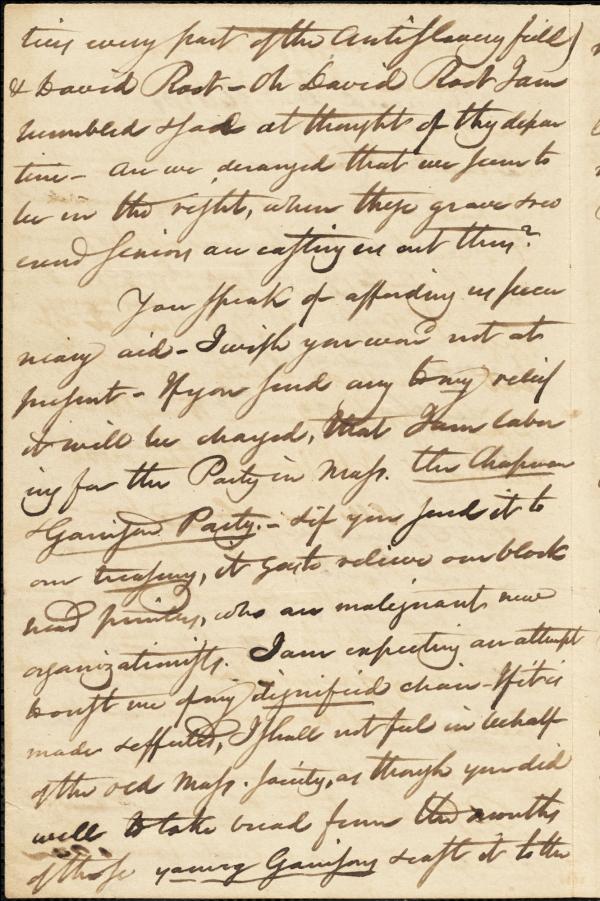 ties every part of the Antislavery field)
& David Root - Oh David Root I am
humbled & sad at thought of thy depar
ture - Are we deranged that we seem to
be in the right, when these grave & rev
erend Seniors are casting us out thus?
You speak of affording us pecu
niary aid - I wish you would not at
present - If you send any to my relief
it will be charged, that I am labor
ing for the Party in Mass. the Chapman
& Garrison Party. - & if you send it to
our treasury, it goes to relieve our block
head printers, who are malignant new
organizationists. I am expecting an attempt
to oust me of my dignified chair - If it is
made & effected, I shall not feel in behalf
of the old Mass. Society, as though you did
well to take bread from the mouths
of those young Garrisons & cast it to the